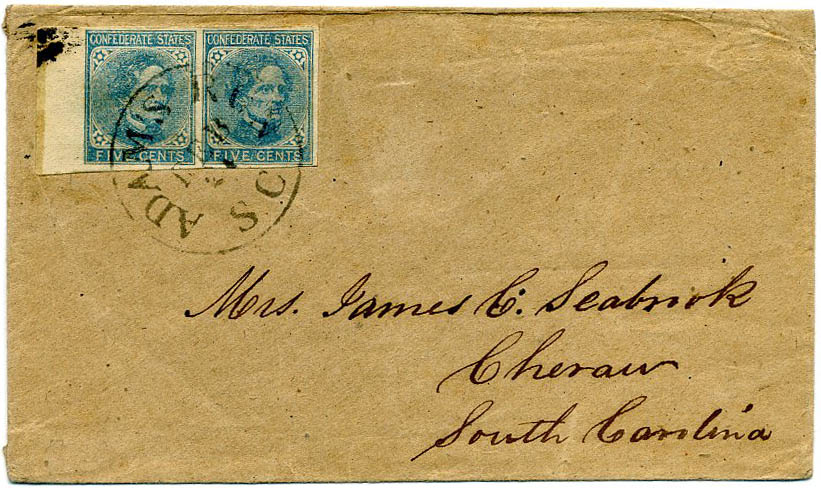 CONFEDERATE STATES CONFEDERATE STATES
FIVE CENTS FIVE CENTS
ADAMS
S C
Mrs. James C. Seabrook
Cheraw
South Carolina